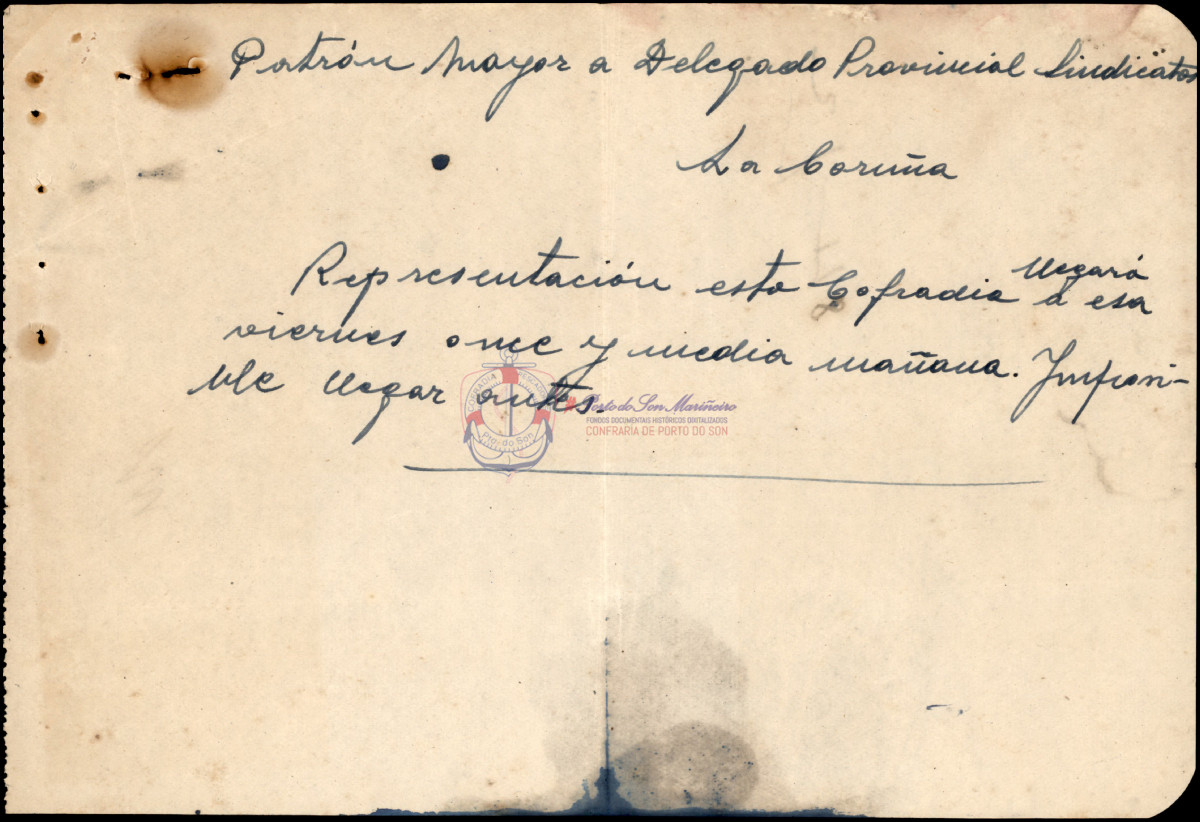 Patrón Mayor a Delegado Provincial Sindicatos
La Coruña
llegará
Representación esta Cofradia a esa
viernes once y media mañana. Imposi-
ble llegar antes.
COFRADIA PESCADORES
Pto. do Son
Porto do Son Mariñeiro
FONDOS DOCUMENTAIS HISTÓRICOS DIGITALIZADOS
CONFRARÍA DE PORTO DO SON